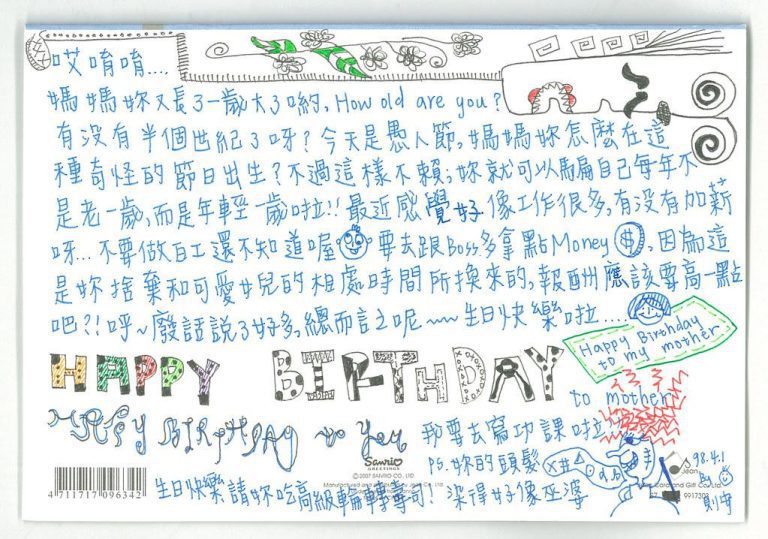 哎唷唷....
媽媽妳又長了一歲大了喲, How old are you?
有沒有半個世紀了呀?今天是愚人節,媽媽妳怎麼在這
種奇怪的節日出生?不過這樣不賴,妳就可以騙自己每年不
是老一歲,而是年輕一歲啦!!最近感覺好像工作很多,有沒有加薪
呀...不要做白工還不知道喔 要去跟Boss多拿點Money $,因為這
是妳捨棄和可愛女兒的相處時間所換來的,報酬應該要高一點
吧?!呼~廢話說了好多,總而言之呢~~生日快樂啦....
Happy Birthday
to my mother
HAPPY BIRTHDAY
to mother
HAPPY BIRTHDAY to You
我要去寫功課啦
Sanrio
GREETINGS
©2007 SANRIO CO., LTD.
P.S.妳的頭髮
染得好像巫婆
生日快樂請妳吃高級輪轉壽司!
4 711717 096342
Jean
Card and Gift Co., Ltd
9917303
98.4.1
By
則安